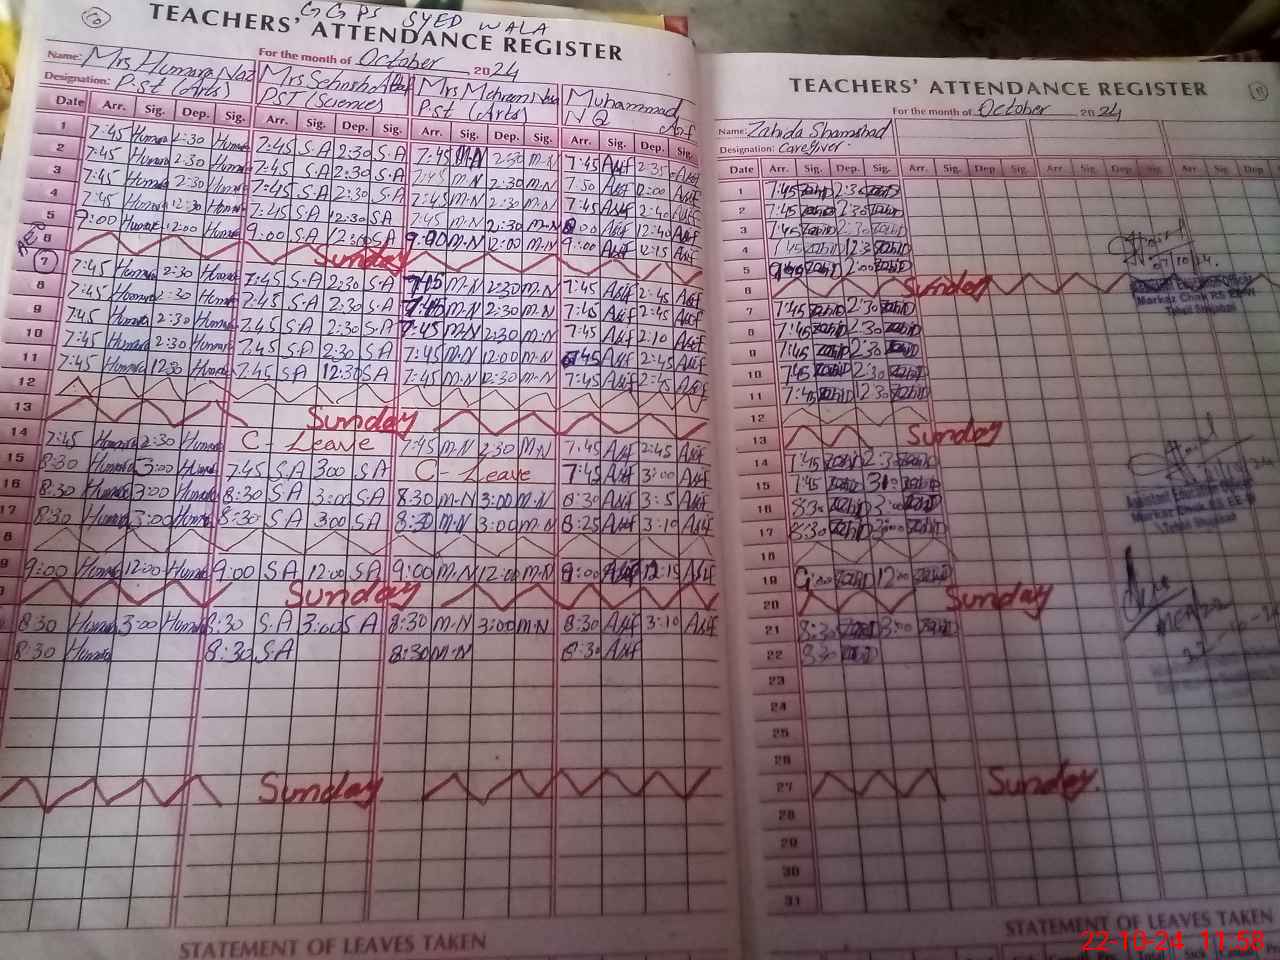 GGPS SYED WALA
TEACHERS' ATTENDANCE REGISTER
Name: Mrs Humara Naz
For the month of October 2024
Designation: P.st (Arts)
Mrs Sehrish Altaf
PST (Sciences)
Mrs Mehram Nisa
P.st (Arts)
Muhammad Asif
N Q
Date Arr. Sig. Dep. Sig. Arr. Sig. Dep. Sig. Arr. Sig. Dep. Sig. Arr. Sig. Dep. Sig.
1 7:45 Humara 2:30 Humara 7:45 S.A 2:30 S.A 7:45 M.N 2:30 M.N 7:45 Asif 2:35 Asif
2 7:45 Humara 2:30 Humara 7:45 S.A 2:30 S.A 7:45 M.N 2:30 M.N 7:50 Asif 2:00 Asif
3 7:45 Humara 2:30 Humara 7:45 S.A 2:30 S.A 7:45 M.N 2:30 M.N 7:45 Asif 2:40 Asif
4 7:45 Humara 12:30 Humara 7:45 S.A 12:30 S.A 7:45 M.N 2:30 M.N 8:00 Asif 12:40 Asif
5 9:00 Humara 12:00 Humara 9:00 S.A 12:00 S.A 9:00 M.N 2:00 M.N 9:00 Asif 12:15 Asif
6 Sunday
7 7:45 Humara 2:30 Humara 7:45 S.A 2:30 S.A 7:45 M.N 2:30 M.N 7:45 Asif 2:45 Asif
8 7:45 Humara 2:30 Humara 7:45 S.A 2:30 S.A 7:45 M.N 2:30 M.N 7:45 Asif 2:45 Asif
9 7:45 Humara 2:30 Humara 7:45 S.A 2:30 S.A 7:45 M.N 2:30 M.N 7:45 Asif 2:10 Asif
10 7:45 Humara 2:30 Humara 7:45 S.A 2:30 S.A 7:45 M.N 12:00 M.N 7:45 Asif 2:45 Asif
11 7:45 Humara 12:30 Humara 7:45 S.A 12:30 S.A 7:45 M.N 12:30 M.N 7:45 Asif 2:45 Asif
12
13 Sunday
14 7:45 Humara 2:30 Humara C-Leave 7:45 M.N 2:30 M.N 7:45 Asif 2:45 Asif
15 8:30 Humara 3:00 Humara 7:45 S.A 300 S.A C-Leave 7:45 Asif 3:00 Asif
16 8:30 Humara 3:00 Humara 8:30 S.A 3:00 S.A 8:30 M.N 3:00 M.N 8:30 Asif 3:5 Asif
17 8:30 Humara 3:00 Humara 8:30 S.A 300 S.A 8:30 M.N 3:00 M.N 8:25 Asif 3:10 Asif
8
9 9:00 Humara 12:00 Humara 9:00 S.A 12:00 S.A 9:00 M.N 12:00 M.N 9:00 Asif 12:15 Asif
Sunday
8:30 Humara 3:00 Humara 8:30 S.A 3:00 S.A 8:30 M.N 3:00 M.N 8:30 Asif 3:10 Asif
8:30 Humara 8:30 S.A 8:30 M.N 8:30 Asif
Sunday
STATEMENT OF LEAVES TAKEN
TEACHERS' ATTENDANCE REGISTER
For the month of October 2024
Name: Zahida Shamshad
Designation: Caregiver
Date Arr. Sig. Dep. Sig. Arr. Sig. Dep. Sig. Arr. Sig. Dep. Sig. Arr. Sig. Dep.
1 7:45 Zahid 2:30 Zahid
2 7:45 Zahid 2:30 Zahid
3 7:45 Zahid 2:30 Zahid
4 7:45 Zahid 12:30 Zahid
5 9:00 Zahid 2:00 Zahid
07/10/24.
6 Sunday
Markaz Chak RS
7 7:45 Zahid 2:30 Zahid
8 7:45 Zahid 2:30 Zahid
9 7:45 Zahid 2:30 Zahid
10 7:45 Zahid 2:30 Zahid
11 7:45 Zahid 12:30 Zahid
12
13 Sunday
14 7:45 Zahid 2:30 Zahid
15 7:45 Zahid 3:0 Zahid
16 8:30 Zahid 3:00 Zahid
Assistant Education
17 8:30 Zahid 3:00 Zahid
18
19 9:00 Zahid 12:00 Zahid
20 Sunday
21 8:30 Zahid 3:00 Zahid
22 8:30 Zahid
23
24
25
26
27 Sunday
28
29
30
31
STATEMENT OF LEAVES TAKEN
22-10-24 11:58